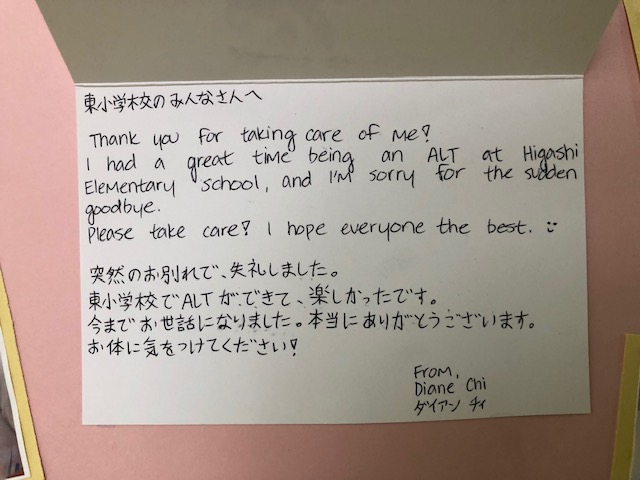 東小学校のみんなさんへ
Thank you for taking care of me!
I had a great time being an ALT at Higashi
Elementary school, and I'm sorry for the sudden
goodbye.
Please take care! I hope everyone the best. :)
突然のお別れで、失礼しました。
東小学校でALTができて、楽しかったです。
今までお世話になりました。本当にありがとうございます。
お体に気をつけてください!
From,
Diane Chi
ダイアン チィ